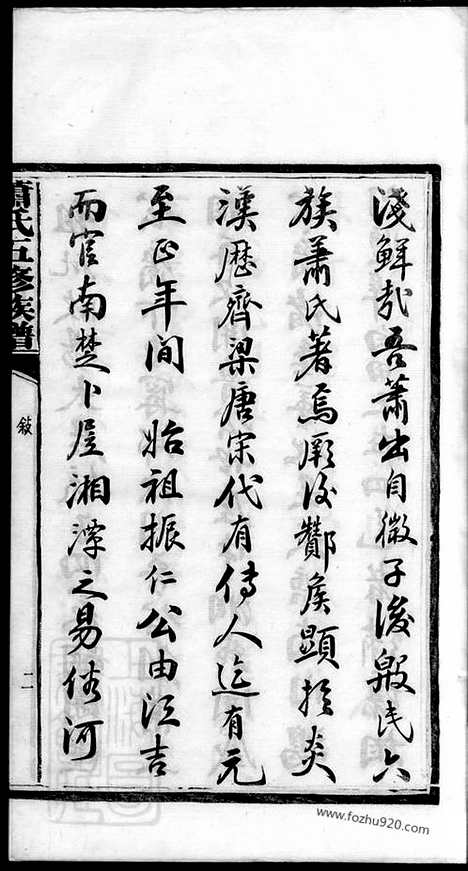 淺鮮哉吾蕭出自微子後殷民六
族蕭氏著焉厥後酇矦顯於炎
漢歷齊梁唐宋代有傳人迄有元
至正年間　始祖振仁公由江吉
而官南楚卜居湘潭之易俗河
蕭氏五修族譜
敍
二
www.fozhu920.com